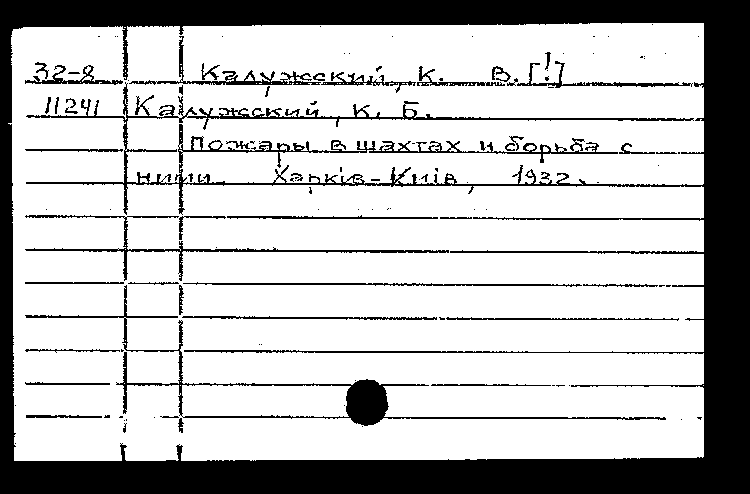 32-8 Калужский, К. В. [!]
11241 Калужский, К. Б.
Пожары в шахтах и борьба с
ними. Харкiв-Киiв, 1932.